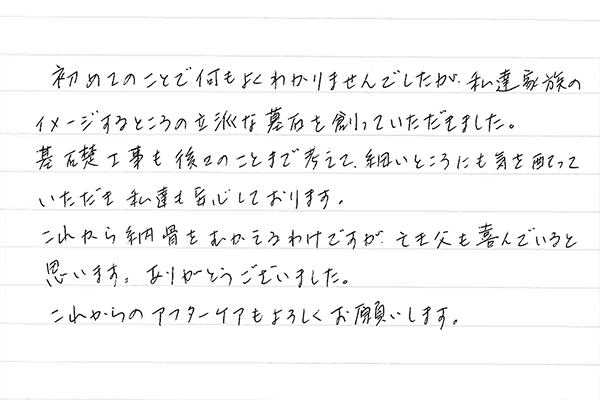 初めてのことで何もよくわかりませんでしたが、私達家族の
イメージするところの立派な墓石を創っていただきました。
基礎工事も後々のことまで考えて、細いところにも気を配って
いただき私達も安心しております。
これから納骨をむかえるわけですが、父も喜んでいると
思います。ありがとうございました。
これからのアフターケアもよろしくお願いします。